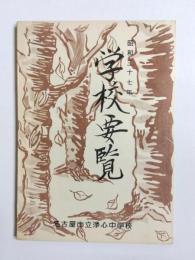 昭和三十七年
学校要覧
名古屋市立浄心中学校